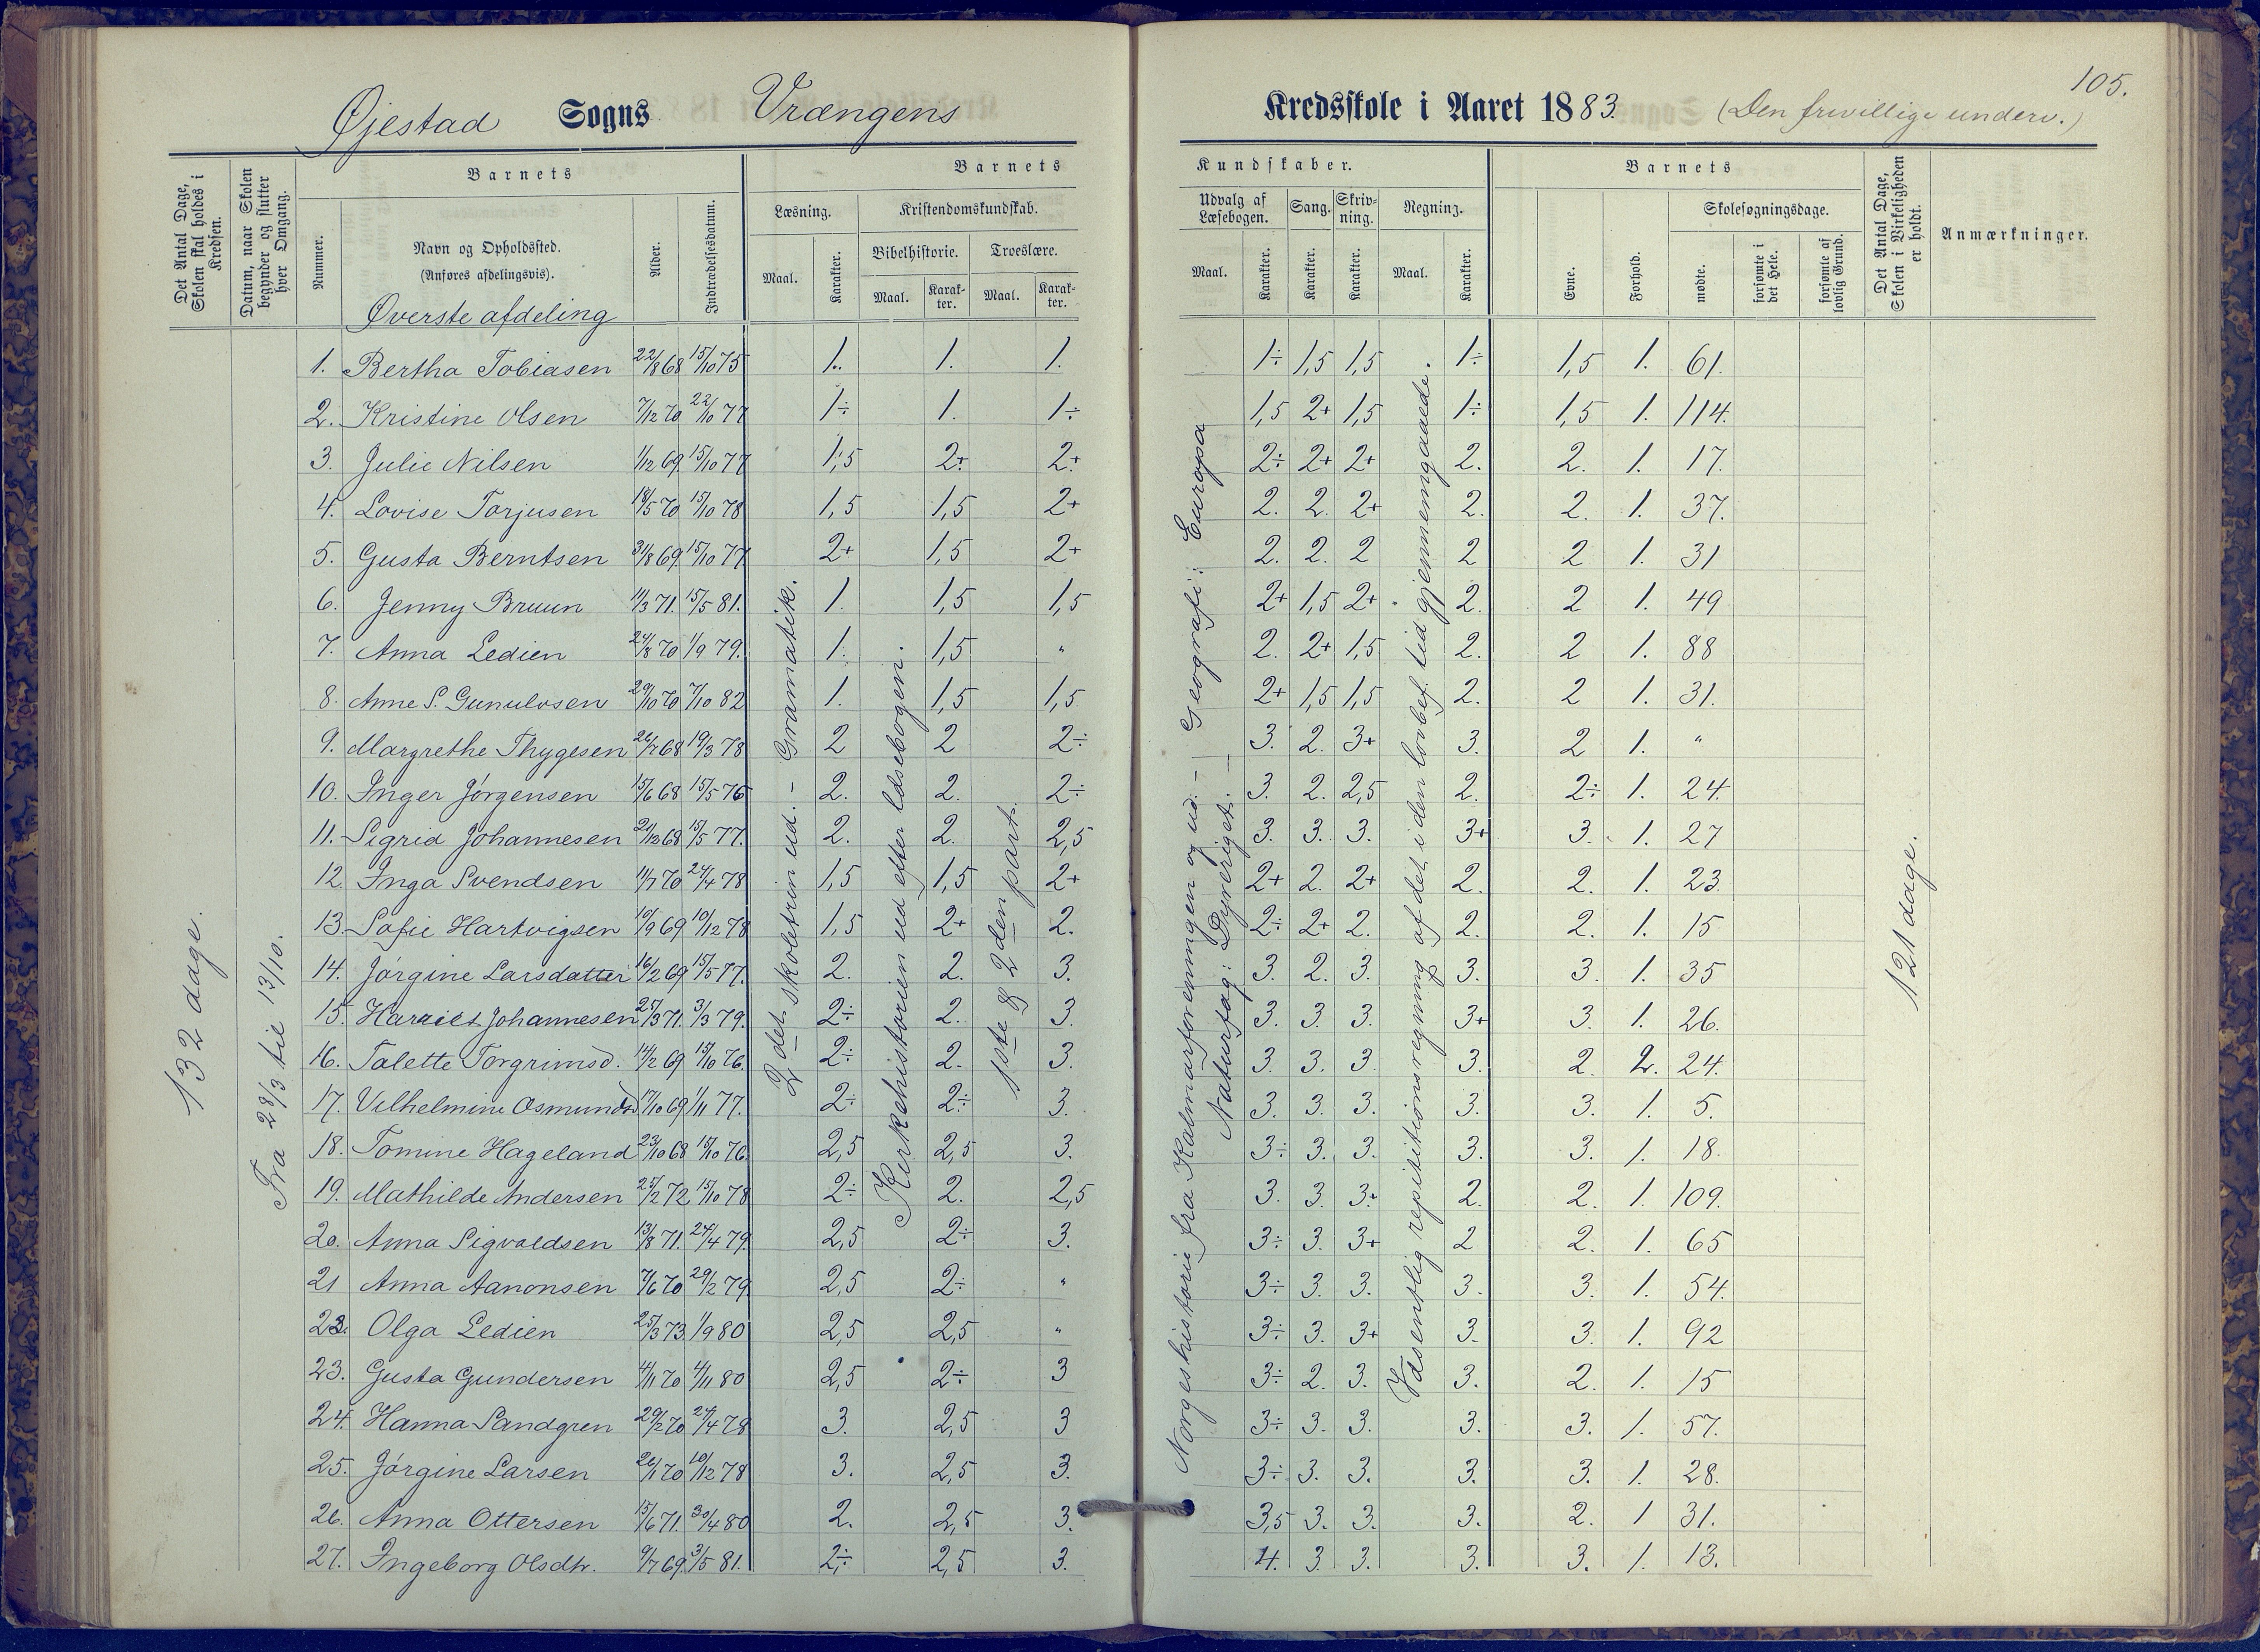 105.
Øjestad Sogns Vrængens Kredsskole i Aaret 1883. (Den frivillige underv.)
Det Antal Dage, Skolen skal holdes i Kredsen.
Datum, naar Skolen begynder og slutter hver Omgang.
Barnets
Nummer.
Navn og Opholdssted.
(Anføres afdelingsvis).
Alder.
Indtrædelsesdatum.
Barnets Kundskaber.
Læsning.
Maal.
Karakter.
Kristendomskundskab.
Bibelhistorie.
Maal.
Karakter.
Troeslære.
Maal.
Karakter.
Udvalg af Læsebogen.
Maal.
Karakter.
Sang.
Karakter.
Skrivning.
Karakter.
Regning.
Maal.
Karakter.
Barnets
Evne.
Forhold.
Skolesøgningsdage.
mødte.
forsømte i det Hele.
forsømte af lovlig Grund.
Det Antal Dage, Skolen i Virkeligheden er holdt.
Anmærkninger.
Øverste afdeling
132 dage.
Fra 28/3 til 13/10.
2det skoletrin ud. - Gramatik.
Kirkehistorien ud efter læsebogen.
1ste & 2den part.
Norgeshistorie fra Kalmarforeningen og ud. - Geografi: Europa
Naturfag: Dyreriget. -
Væsentlig repititionsregning af det i den lovbef. tid gjennemgaaede.
121 dage.
1. Bertha Tobiasen 22/8 68 15/10 75 1. 1. 1. 1÷ 1,5 1,5 1÷ 1,5 1. 61.
2. Kristine Olsen 7/12 70 22/10 77 1÷ 1. 1÷ 1,5 2+ 1,5 1÷ 1,5 1. 114.
3. Julie Nilsen 1/12 69 15/10 77 1,5 2+ 2+ 2÷ 2+ 2+ 2. 2. 1. 17.
4. Lovise Torjusen 18/5 70 15/10 78 1,5 1,5 2+ 2. 2. 2+ 2. 2. 1. 37.
5. Gusta Berntsen 31/8 69 15/10 77 2+ 1,5 2+ 2. 2. 2 2 2 1. 31
6. Jenny Bruun 11/3 71. 15/5 81. 1. 1,5 1,5 2+ 1,5 2+ 2. 2 1. 49
7. Anna Ledien 24/8 70 1/9 79. 1. 1,5 " 2. 2+ 1,5 2. 2 1. 88
8. Anne S. Gunulvsen 29/10 70 7/10 82 1. 1,5 1,5 2+ 1,5 1,5 2. 2 1. 31.
9. Margrethe Thygesen 26/7 68 19/3 78 2 2 2÷ 3. 2. 3+ 3. 2 1. "
10. Inger Jørgensen 15/6 68 15/5 76 2. 2. 2÷ 3. 2. 2,5 2. 2÷ 1. 24.
11. Sigrid Johannesen 21/12 68 15/5 77. 2. 2. 2,5 3. 3. 3. 3+ 3. 1. 27
12. Inga Svendsen 11/7 70 24/4 78 1,5 1,5 2+ 2+ 2. 2+ 2. 2. 1. 23.
13. Sofie Hartvigsen 10/9 69 10/12 78 1,5 2+ 2. 2÷ 2+ 2. 2. 2. 1. 15
14. Jørgine Larsdatter 16/2 69 15/5 77. 2. 2. 3. 3. 2. 3. 3. 3. 1. 35
15. Harriet Johannesen 25/3 71. 3/3 79. 2÷ 2. 3. 3. 3. 3. 3+ 3. 1. 26.
16. Talette Torgrimsd. 14/2 69 15/10 76. 2÷ 2. 3. 3. 3. 3. 3. 2. 2. 24.
17. Vilhelmine Osmundsd 17/10 69 1/11 77. 2÷ 2÷ 3. 3. 3. 3. 3. 3. 1. 5.
18. Tomine Hageland 23/10 68 15/10 76. 2,5 2,5 3. 3÷ 3. 3. 3. 3. 1. 18.
19. Mathilde Andersen 25/2 72 15/10 78 2÷ 2. 2,5 3. 3. 3+ 2. 2. 1. 109.
20. Anna Sigvaldsen 13/8 71. 24/4 79. 2,5 2÷ 3. 3÷ 3. 3+ 2 2. 1. 65
21 Anna Aanonsen 7/6 70 29/2 79. 2,5 2÷ " 3÷ 3. 3. 3. 3. 1. 54.
22. Olga Ledien 25/3 73. 1/9 80 2,5 2,5 " 3÷ 3. 3+ 3. 3. 1. 92
23. Gusta Gundersen 4/11 70 4/11 80 2,5 2÷ 3 3÷ 2. 3. 3. 2. 1. 15
24. Hanna Sandgren 29/2 70 24/4 78 3. 2,5 3 3÷ 3. 3. 3. 3. 1. 57.
25. Jørgine Larsen 26/1 70 10/12 78 3. 2,5 3. 3÷ 3. 3. 3. 3. 1. 28.
26. Anna Ottersen 15/6 71. 30/4 80 2. 2,5 3. 3,5 3. 3. 3. 2. 1 31.
27. Ingeborg Olsdtr. 9/7 69. 3/5 81. 2÷ 2,5 3. 4. 3 3. 3. 3. 1. 13.